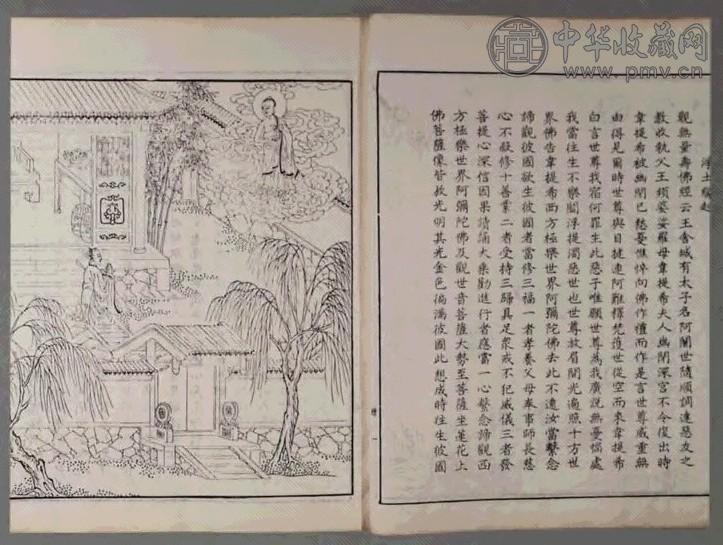 中华收藏网
www.pmv.cn
淨土緣起
觀無量壽佛經云王舍城有太子名阿闍世隨順調達惡友之
教收執父王頻婆娑羅母韋提希夫人幽閉深宮不令復出時
韋提希被幽閉已愁憂憔悴向佛作禮而作是言世尊威重無
由得見爾時世尊與目揵連阿難釋梵護世從空而來韋提希
白言世尊我宿何罪生此惡子唯願世尊為我廣說無憂惱處
我當往生不樂閻浮提濁惡世也世尊放眉間光遍照十方世
界佛告韋提希西方極樂世界阿彌陀佛去此不遠汝當繫念
諦觀彼國欲生彼國者當修三福一者孝養父母奉事師長慈
心不殺修十善業二者受持三歸具足眾戒不犯威儀三者發
菩提心深信因果讀誦大乘勸進行者應當一心繫念諦觀西
方極樂世界阿彌陀佛及觀世音菩薩大勢至菩薩坐蓮花上
佛菩薩像皆放光明其光金色徧滿彼國此想成時往生彼國